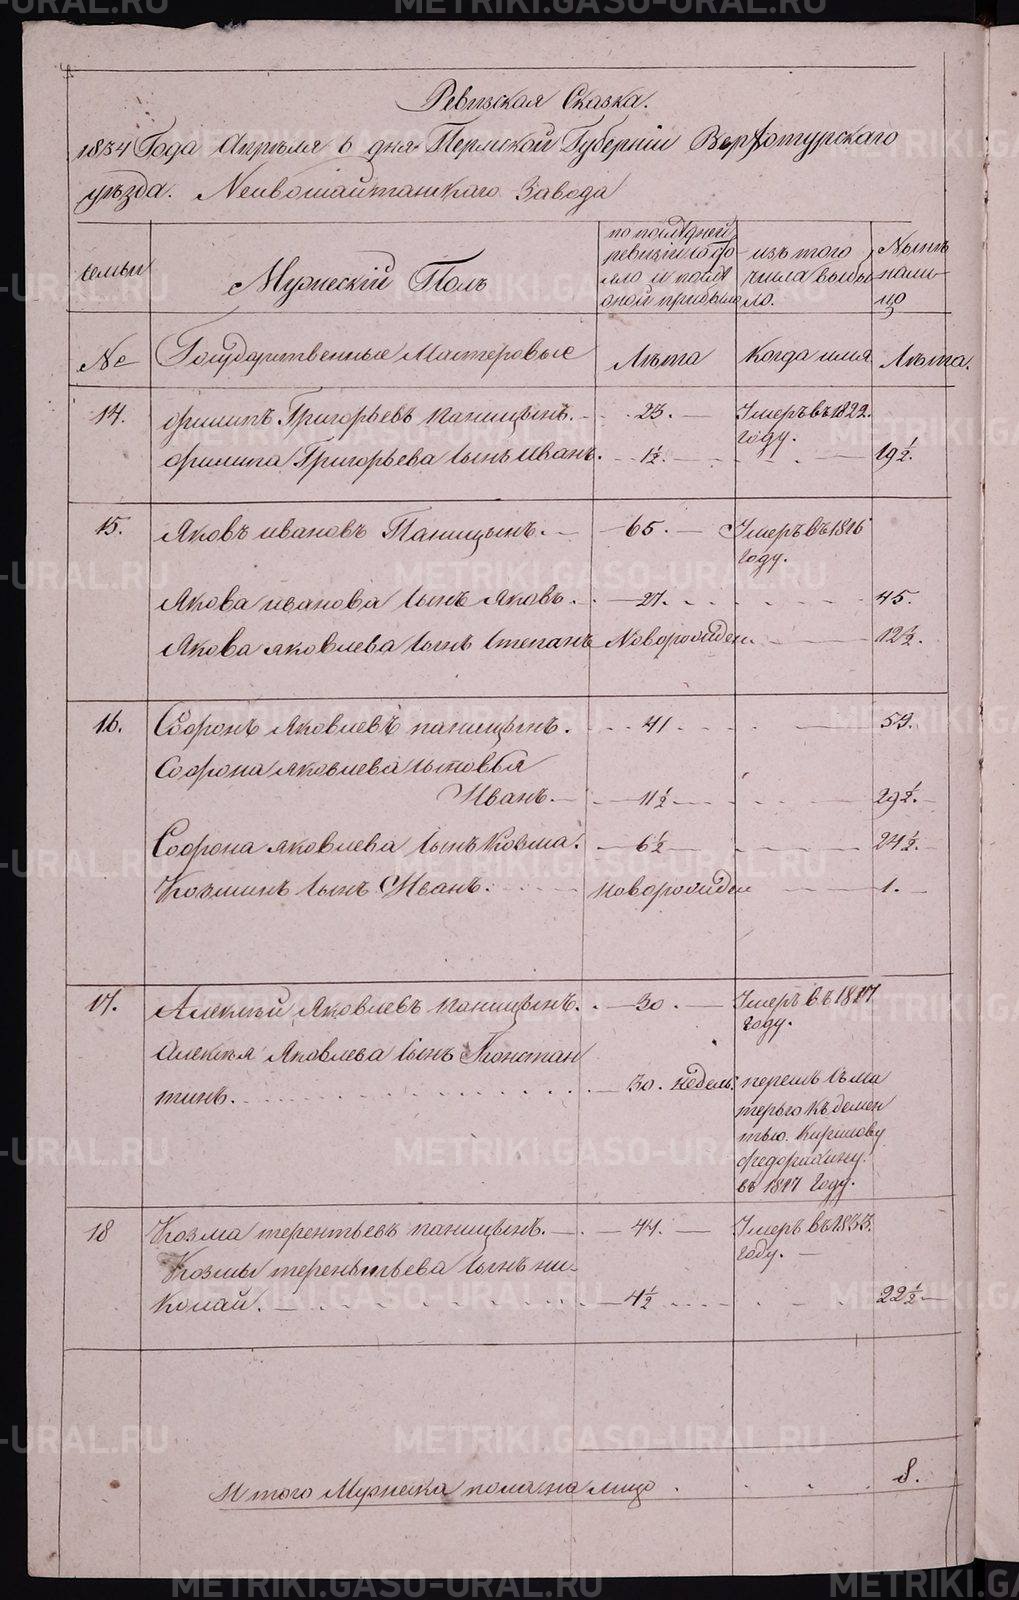 Ревизская Сказка.
1834 Года Апреля 6 дня Пермской Губернiи Верхотурскаго
уѣзда. Нейвошайтанскаго Завода
семьи
Мужескiй Полъ
по последней ревизiи состояло и после оной прибыло
изъ того числа выбыло.
Нынѣ налицо
№
Государственные Мастеровые
Лѣта
Когда имян.
Лѣта.
14. Филипъ Григорьевъ паницынъ. 23. Умеръ въ 1822.
году.
Филипа Григорьева сынъ Иванъ. 1½. 19½.
15. Яковъ ивановъ Паницынъ. 65. Умеръ въ 1816
году.
Якова иванова сынъ Яковъ. 27. 45.
Якова яковлева сынъ степанъ Новорожден. 12½.
16. Софронъ яковлевъ паницынъ. 41 59.
Софрона яковлева сыновья
Иванъ. 11½ 29½.
Софрона яковлева сынъ Козма. 6½ 24½.
Козминъ сынъ Иванъ. новорожден 1.
17. Алексѣй Яковлевъ паницынъ. 30. Умеръ въ 1817
году.
Алексѣя Яковлева сынъ Констан
тинъ. 30. недель. перешъ съ ма
терью къ демен
тью. Кирилову
федорахину.
въ 1817 году.
18 Козма терентьевъ паницынъ. 44. Умеръ въ 1833.
году.
Козмы терентьева сынъ ни-
колай. 4½ 22½
Итого Мужеска пола на лицо 8.
METRIKI.GASO-URAL.RU